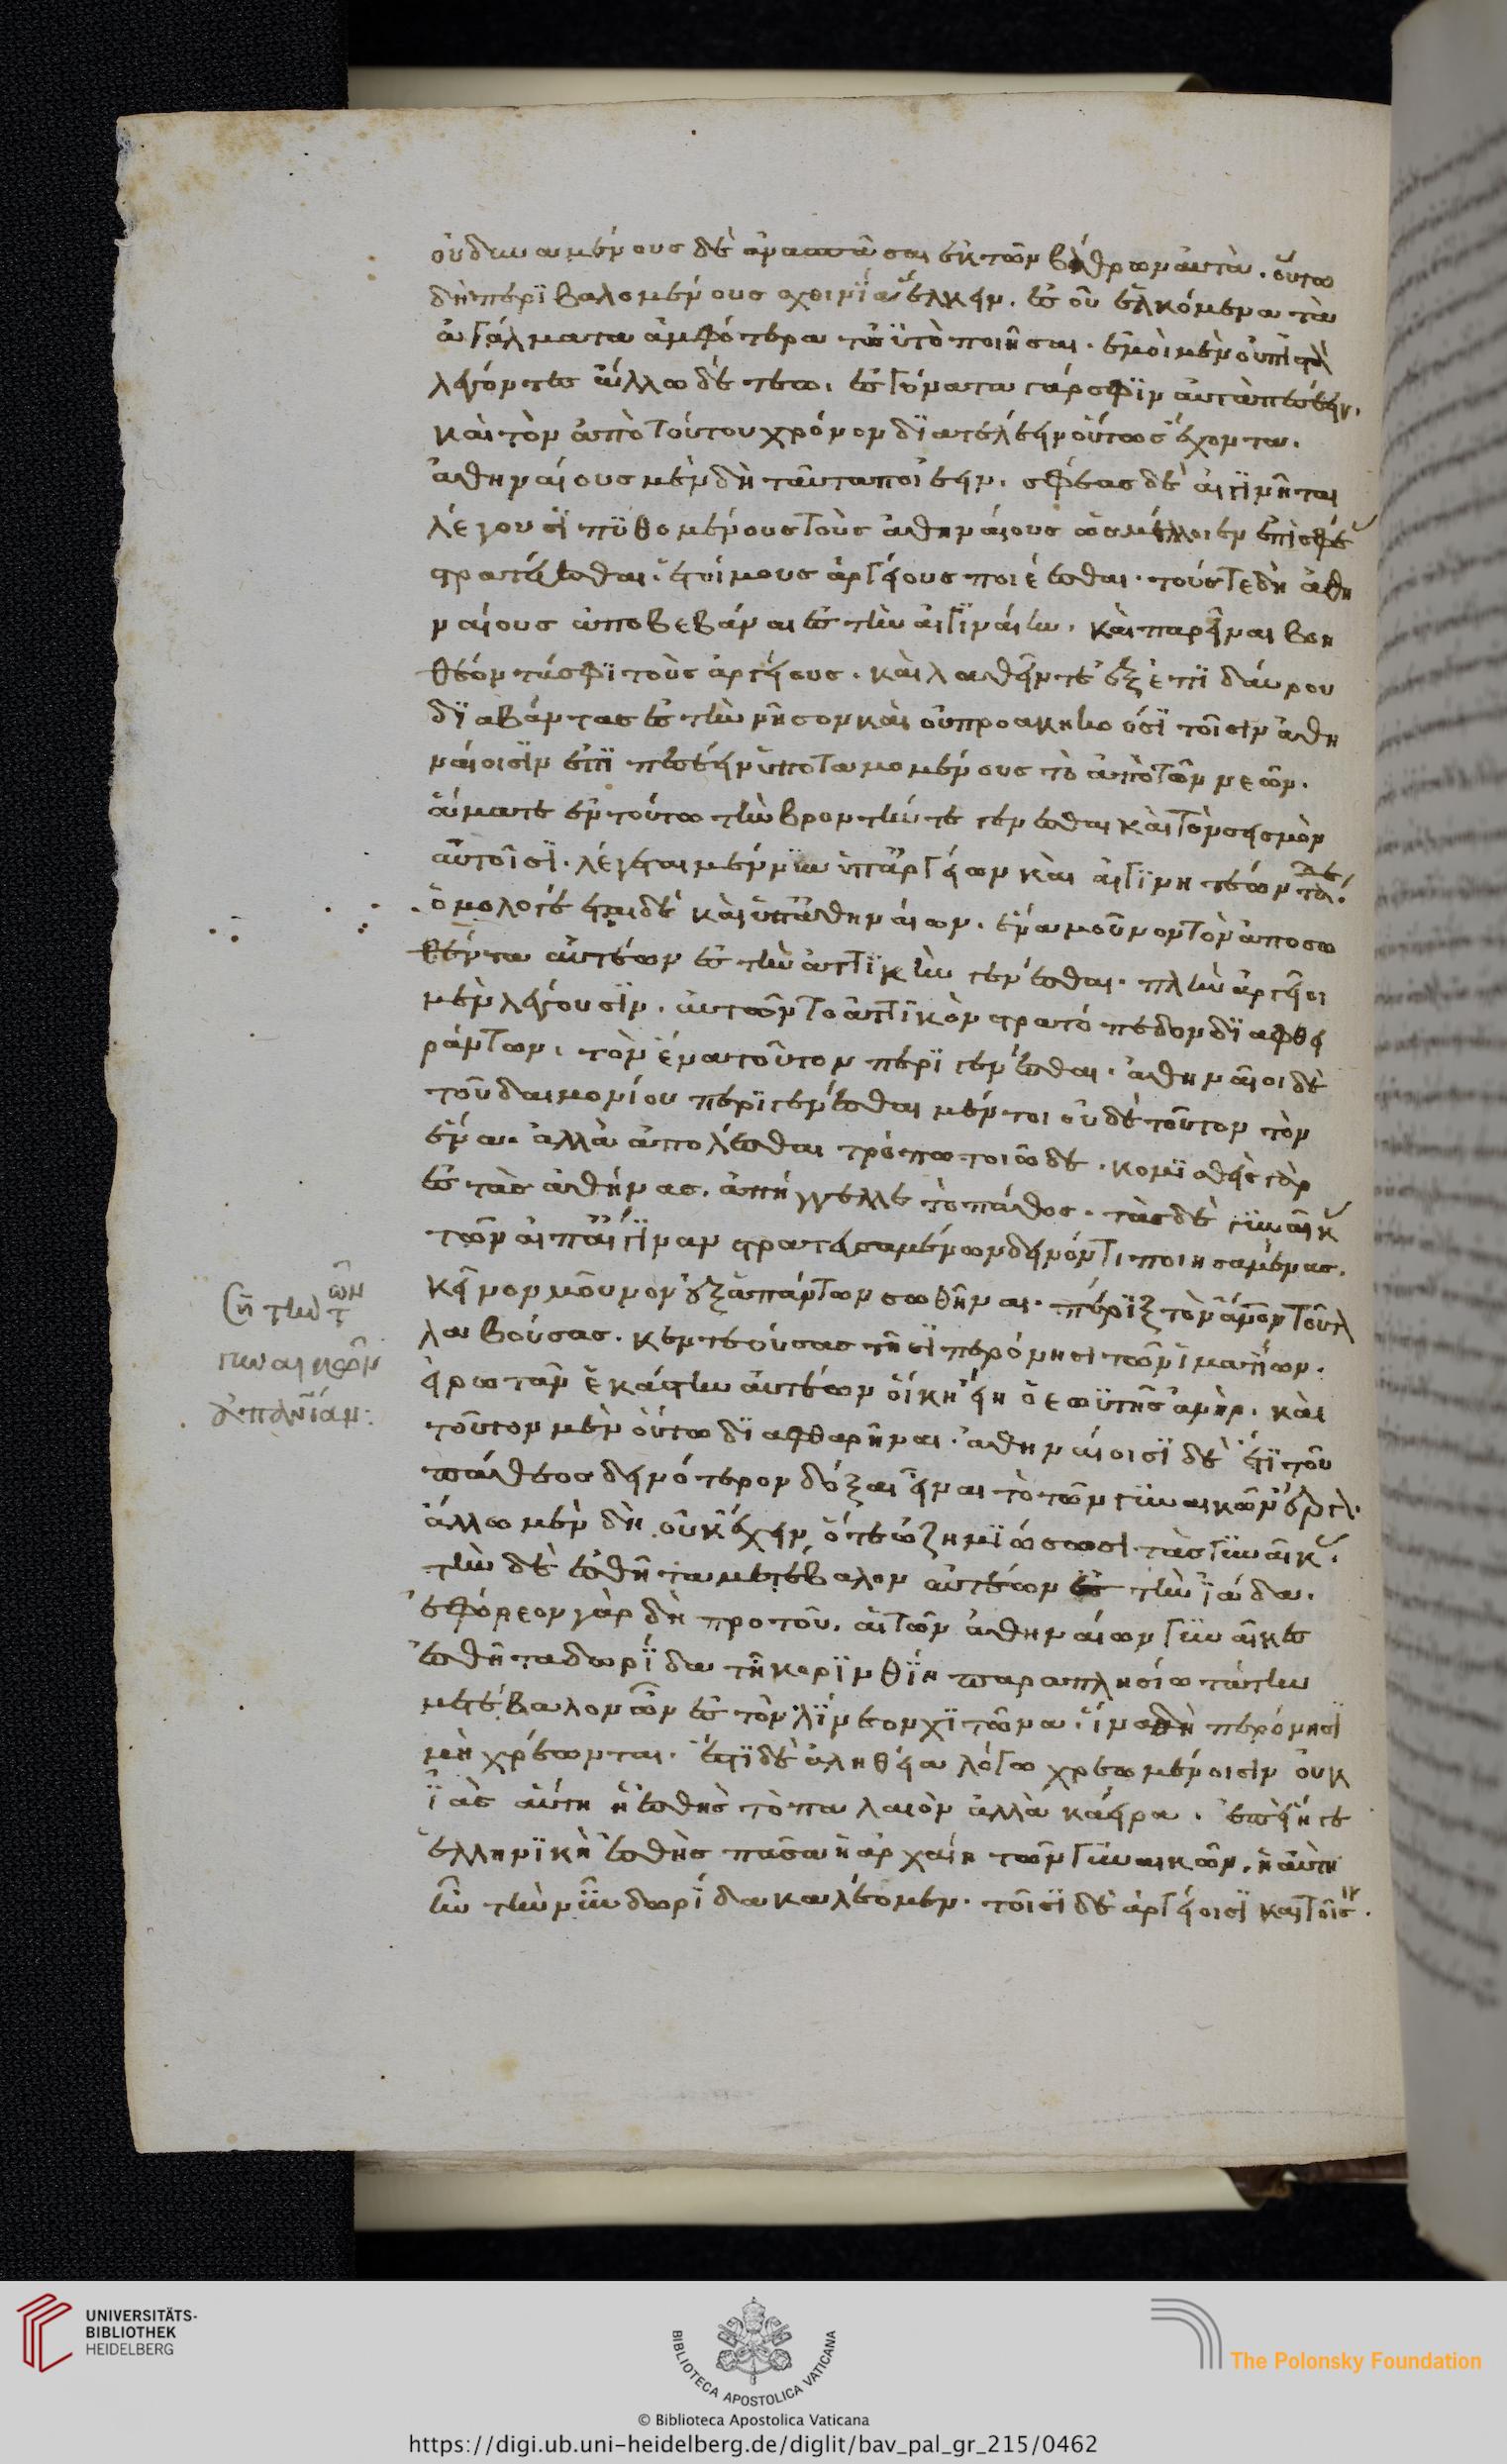 οὐ δυναμένους δὲ ἀνασπᾶσαι ἐκ τῶν βάθρων αὐτὰ. οὕτω
δὴ περϊβαλομένους σχοινΐα ἕλκειν. ἐς οὗ ἑλκόμενα τὰ
ἀγάλματα ἀμφότερα τὠϋτὸ ποιῆσαι. ἐμοὶ μὲν οὐ πϊστὰ
λέγοντες ἄλλω δέ τεω. ἐς γόνατα γάρ σφϊν αὐτὰ πεσέειν.
καὶ τὸν ἀπὸ τούτου χρόνον δϊατελέειν οὕτως ἔχοντα.
ἀθηναίους μὲν δὴ ταῦτα ποιέειν. σφέας δὲ αἰγϊνῆται
λέγουσϊ πϋθομένους τοὺς ἀθηναίους ὡς μέλλοιεν ἐπὶ σφέ
στρατεύεσθαι. ἑτοίμους ἀργείους ποιέεσθαι. τούς τε δὴ ἀθη
ναίους ἀποβεβάναι ἐς τὴν αἰγϊναίην. καὶ παρεῖναι βοη
θέοντάς σφϊ τοὺς ἀργείους. καὶ λαθεῖν τε ἐξ ἐπϊδαύρου
δϊαβάντας ἐς τὴν νῆσον καὶ οὐ προακηκοόσϊ τοῖσιν ἀθη
ναίοισϊν ἐπϊπεσέειν ὑποταμομένους τὸ ἀπὸ τῶν νεῶν.
ἅμα τε ἐν τούτω τὴν βροντήν τε γενέσθαι καὶ τὸν σεισμὸν
αὐτοῖσϊ. λέγεται μέν νϋν ὑπ' ἀργείων καὶ αἰγϊνητέων τάδε.
ὁμολογέεται δὲ καὶ ὑπ' ἀθηναίων. ἕνα μοῦνον τὸν ἀποσω
θέντα αὐτέων ἐς τὴν ἀττϊκὴν γενέσθαι. πλὴν ἀργεῖοι
μὲν λέγουσϊν. αὐτῶν τὸ ἀττϊκὸν στρατόπεδον δϊαφθει
ράντων. τὸν ἕνα τοῦτον περϊγενέσθαι. ἀθηναῖοι δὲ
τοῦ δαιμονίου περϊγενέσθαι μέντοι οὐδὲ τοῦτον τὸν
ἕνα. ἀλλὰ ἀπολέσθαι τρόπω τοιῶδε. κομϊσθεὶς γὰρ
ἐς τὰς ἀθήνας. ἀπήγγελλε τὸ πάθος. τὰς δὲ γϋναῖκ
τῶν ἐπ' αἴγϊναν στρατευσαμένων δεινόν τι ποιησαμένας.
κεῖνον μοῦνον ἐξ ἁπάντων σωθῆναι. πέρϊξ τὸν ἄνον τοῦτ
λαβούσας. κεντεούσας τῆσϊ περόνησι τῶν ἱματΐων.
εἰρωτᾶν ἑκάστην αὐτέων ὅκη εἴη ὁ ἑωϋτῆς ἀνὴρ. καὶ
τοῦτον μὲν οὕτω δϊαφθαρῆναι. ἀθηναίοισϊ δὲ ἔτϊ τοῦ
πάθεος δεινότερον δόξαι εἶναι τὸ τῶν γϋναικῶν ἔργον.
ἄλλω μὲν δὴ οὐκ ἔχειν ὅτεω ζημϊώσωσι τὰς γϋναῖκ.
τὴν δὲ ἐσθῆτα μετέβαλον αὐτέων ἐς τὴν ϊάδα.
ἐφόρεον γὰρ δὴ προτοῦ. αἱ τῶν ἀθηναίων γϋναῖκες
ἐσθῆτα δωρΐδα τῆ κορϊνθϊη παραπλησιωτάτην
μετέβαλον ὦν ἐς τὸν λΐνεον χϊτῶνα. ἵνα δὴ περόνησϊ
μὴ χρέωνται. ἔστϊ δὲ ἀληθέϊ λόγω χρεωμένοισιν οὐκ
ϊὰς αὕτη ἡ ἐσθὴς τὸ παλαιὸν ἀλλὰ κάειρα. ἐπεὶ ἥ γε
ἑλληνϊκὴ ἐσθὴς πᾶσα ἡ ἀρχαίη τῶν γϋναικῶν. ἡ αὐτὴ
ἦν τὴν νῦν δωρΐδα καλέομεν. τοῖσϊ δὲ ἀργείοισϊ καὶ τοῖσ
ση τὴν τῶν
γυναικῶν
ἀπόνοιαν:
UNIVERSITÄTS-
BIBLIOTHEK
HEIDELBERG
BIBLIOTECA APOSTOLICA VATICANA
The Polonsky Foundation
© Biblioteca Apostolica Vaticana
https://digi.ub.uni-heidelberg.de/diglit/bav_pal_gr_215/0462